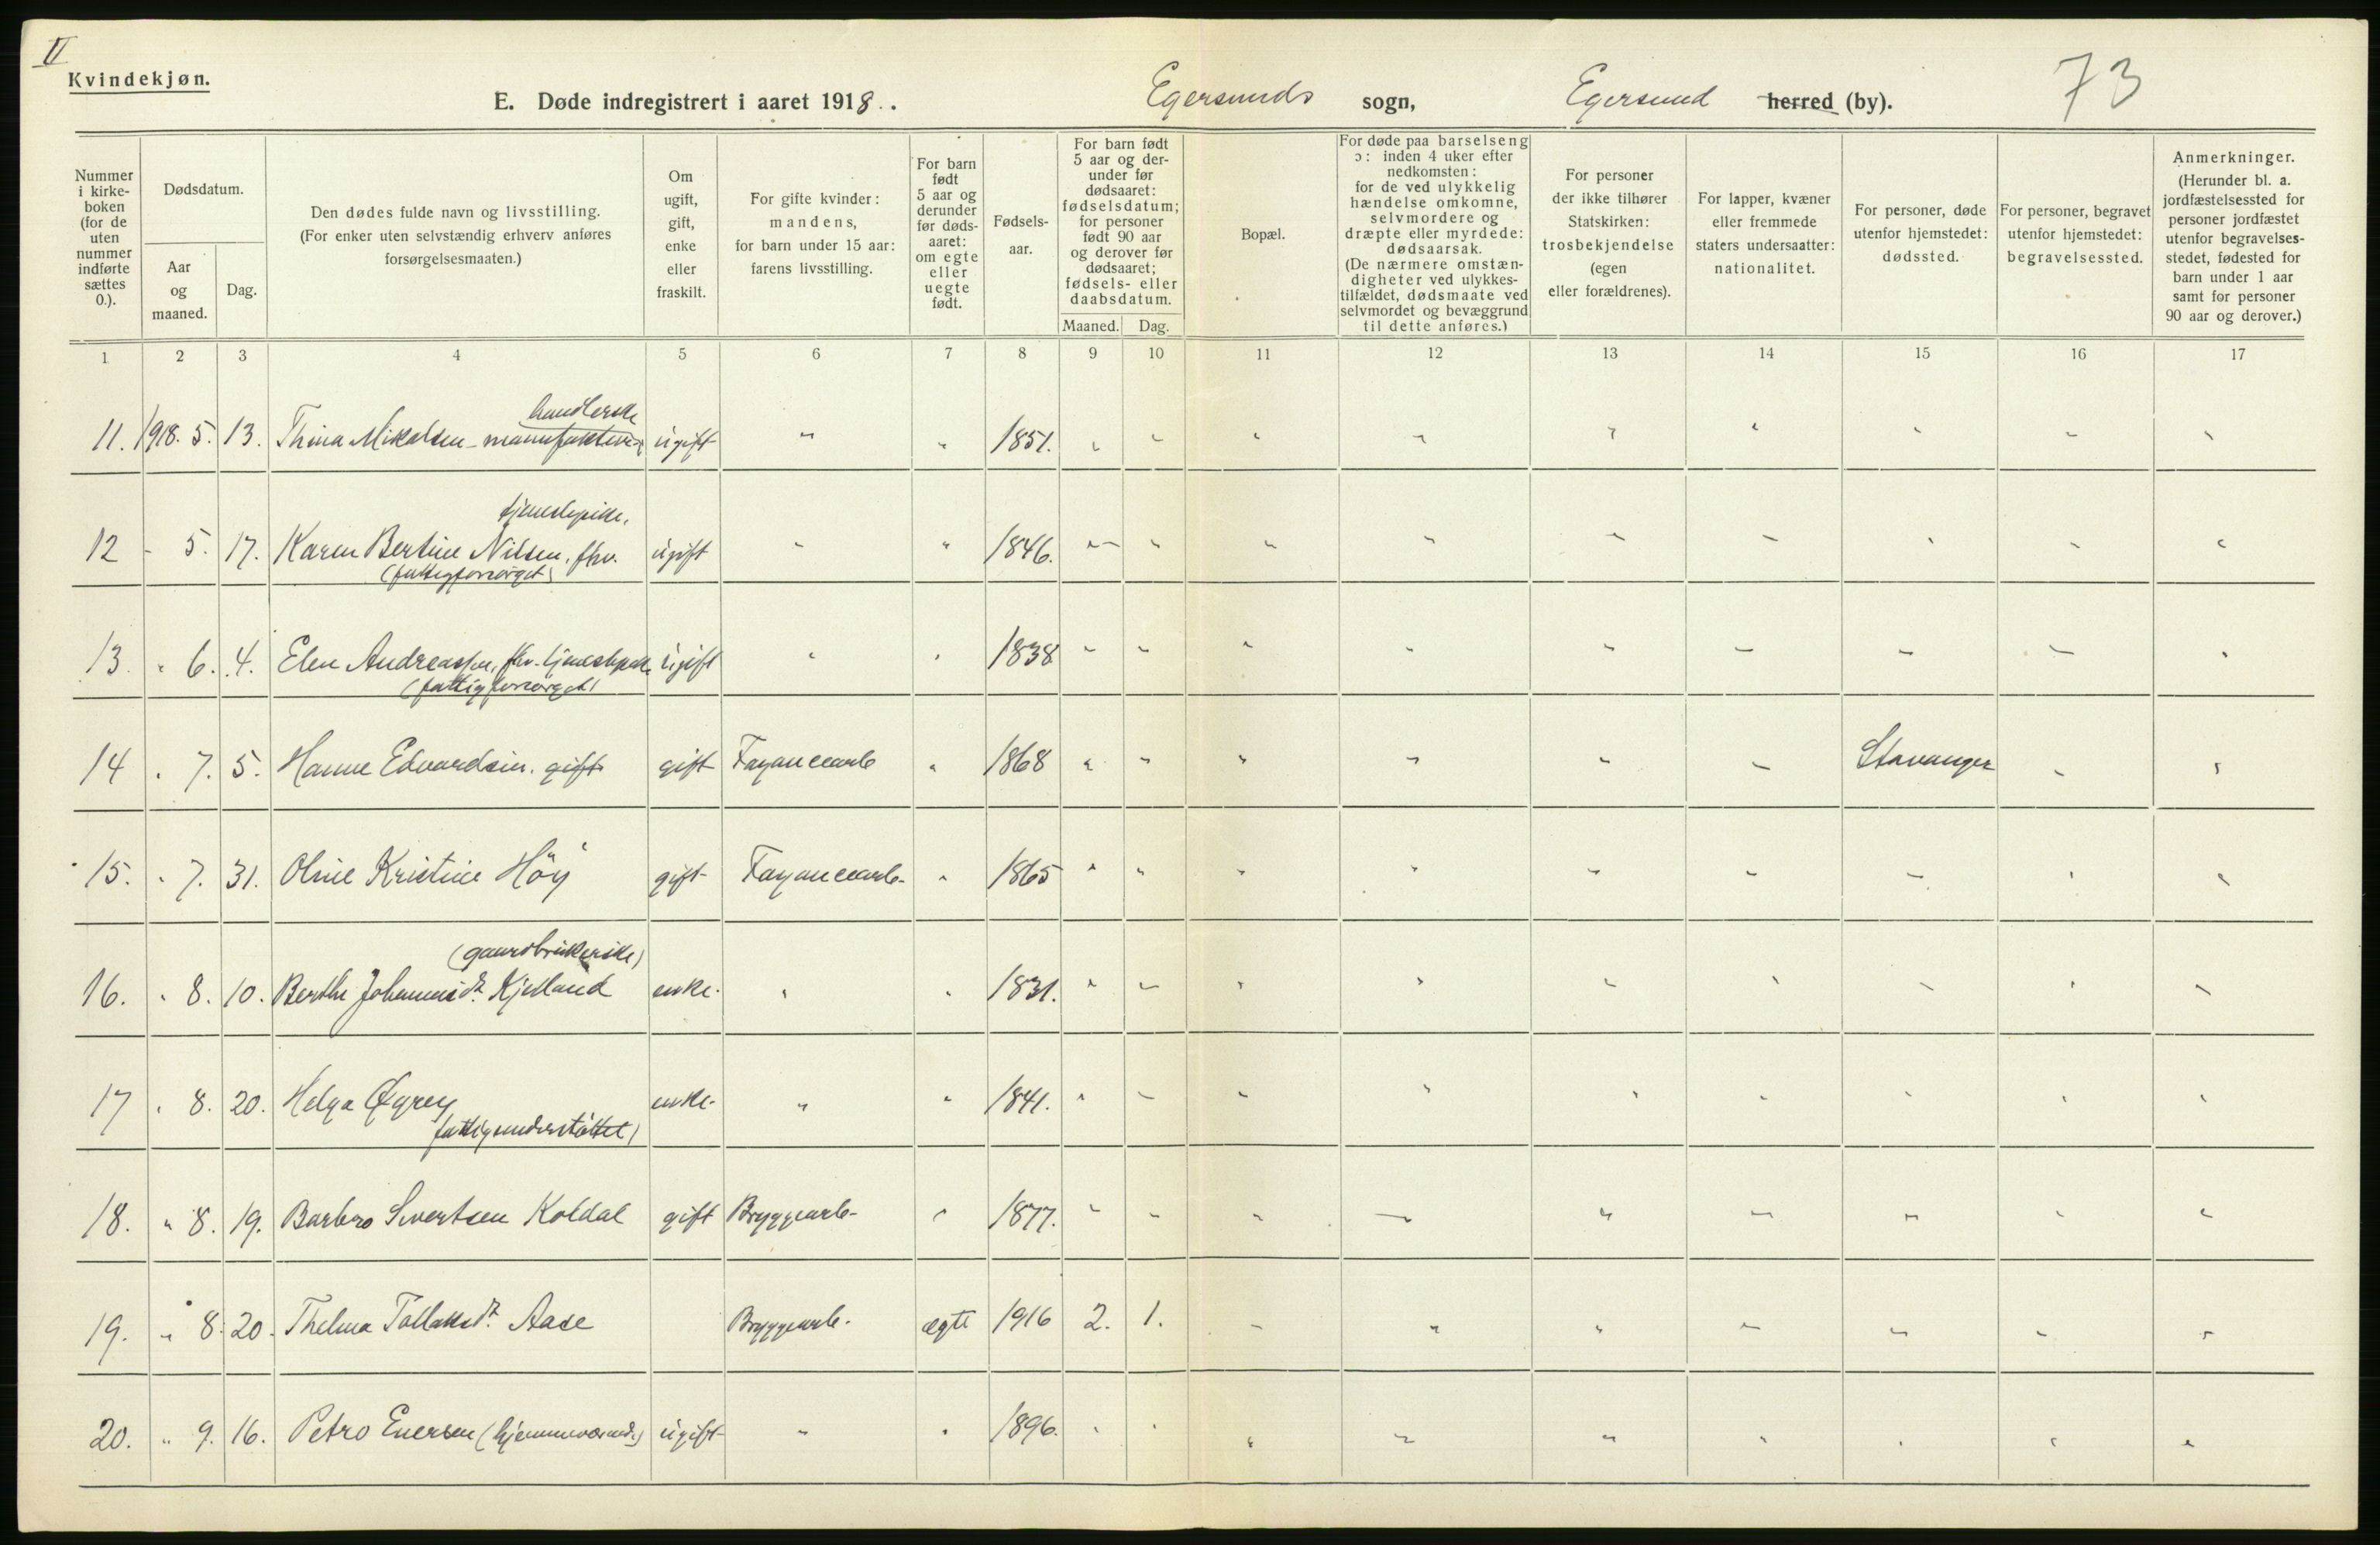 II
Kvindekjøn.
73
E. Døde indregistrert i aaret 1918. . Egersunds sogn, Egersund herred (by).
Nummer i kirkeboken (for de uten nummer indførte sættes 0.).
Dødsdatum.
Aar og maaned.
Dag.
Den dødes fulde navn og livsstilling.
(For enker uten selvstændig erhverv anføres
forsørgelsesmaaten.)
Om ugift, gift, enke eller fraskilt.
For gifte kvinder: mandens, for barn under 15 aar: farens livsstilling.
For barn født 5 aar og derunder før dødsaaret: om egte eller uegte født.
Fødselsaar.
For barn født 5 aar og derunder før dødsaaret: fødselsdatum; for personer født 90 aar og derover før dødsaaret; fødsels- eller daabsdatum.
Maaned. Dag.
Bopæl.
For døde paa barselseng ɔ: inden 4 uker efter nedkomsten: for de ved ulykkelig hændelse omkomne, selvmordere og dræpte eller myrdede: dødsaarsak. (De nærmere omstændigheter ved ulykkestilfældet, dødsmaate ved selvmordet og bevæggrund til dette anføres.)
For personer der ikke tilhører Statskirken: trosbekjendelse (egen eller forældrenes).
For lapper, kvæner eller fremmede staters undersaatter: nationalitet.
For personer, døde utenfor hjemstedet: dødssted.
For personer, begravet utenfor hjemstedet: begravelsessted.
Anmerkninger. (Herunder bl. a. jordfæstelsessted for personer jordfæstet utenfor begravelsesstedet, fødested for barn under 1 aar samt for personer 90 aar og derover.)
1 2 3 4 5 6 7 8 9 10 11 12 13 14 15 16 17
handlerske
11. 1918. 5. 13. Thina Mikalsen - manufaktur ugift " " 1851. " " " " " " " " "
tjenestepike,
12 - 5. 17. Karen Bertine Nilsen, fhv. ugift " " 1846. " " " " " " " " "
(fattigforsørget)
13. " 6. 4. Elen Andreassen, fhv. tjenestepike ugift " " 1838 " " " " " " " " "
(fattigforsørget)
14 " 7. 5. Hanne Edvardsen. gift gift Fayancearb " 1868 " " " " " " Stavanger " "
15. " 7. 31. Oline Kristine Höÿ gift Fayancearb. " 1865 " " " " " " " " "
(gaardbrukerske)
16. " 8. 10. Berthe Johannesdt. Kjelland enke. " " 1831. " " " " " " " " "
17 " 8. 20. Helga Øgrey enke. " " 1841. " " " " " " " " "
fattigunderstøttet)
18. " 8. 19. Barbro Sivertsen Koldal gift Bryggearb. " 1877. " " " " " " " " "
19. " 8. 20. Thelma Tollaksdt. Aase Bryggearb. ægte 1916 2. 1. " " " " " " "
20. " 9. 16. Petro Enersen (hjemmeværende) ugift " " 1896. " " " " " " " " "